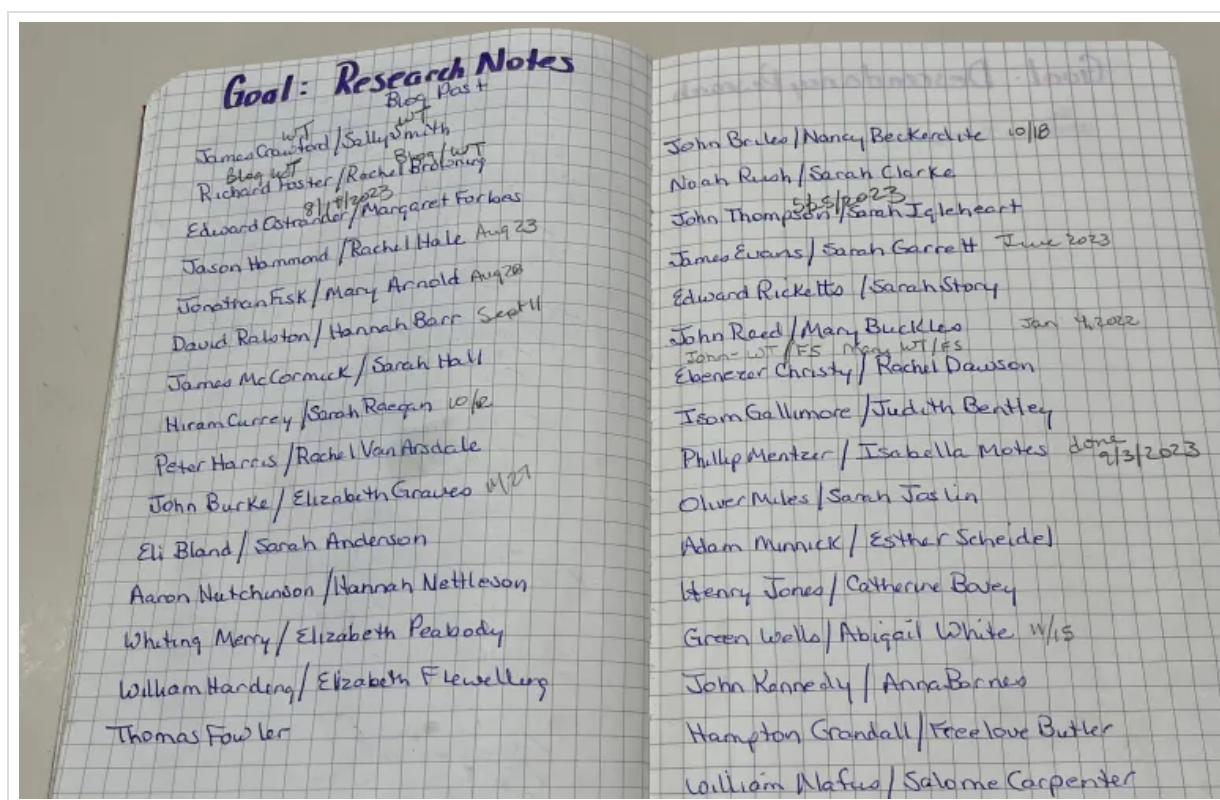 Goal: Research Notes
Blog Post
WT WT
James Crawford/Sally Smith
Blog WT Blog/WT
Richard Foster/Rachel Browning
8/ /2023
Edward Ostrander/Margaret Forbes
Jason Hammond/Rachel Hale Aug 23
Jonathan Fisk/Mary Arnold Aug 28
David Ralston/Hannah Barr Sept 11
James McCormick/Sarah Hall
Hiram Currey/Sarah Reegan 10/2
Peter Harris/Rachel Van Arsdale
John Burke/Elizabeth Graves 11/27
Eli Bland/Sarah Anderson
Aaron Hutchinson/Hannah Nettleson
Whiting Merry/Elizabeth Peabody
William Harding/Elizabeth Flewelling
Thomas Fowler
John Briles/Nancy Beckerdite 10/18
Noah Rush/Sarah Clarke
2023
John Thompson/Sarah Igleheart
James Evans/Sarah Garrett June 2023
Edward Ricketts/Sarah Story
John Reed/Mary Buckles Jan 4, 2022
John-WT/FS Mary WT/FS
Ebenezer Christy/Rachel Dawson
Isom Gallimore/Judith Bentley
Phillip Mentzer/Isabella Motes done
9/3/2023
Oliver Miles/Sarah Joslin
Adam Minnick/Esther Scheidel
Henry Jones/Catherine Bovey
Green Wells/Abigail White 11/15
John Kennedy/Anna Barnes
Hampton Crandall/Freelove Butler
William Nafus/Salome Carpenter